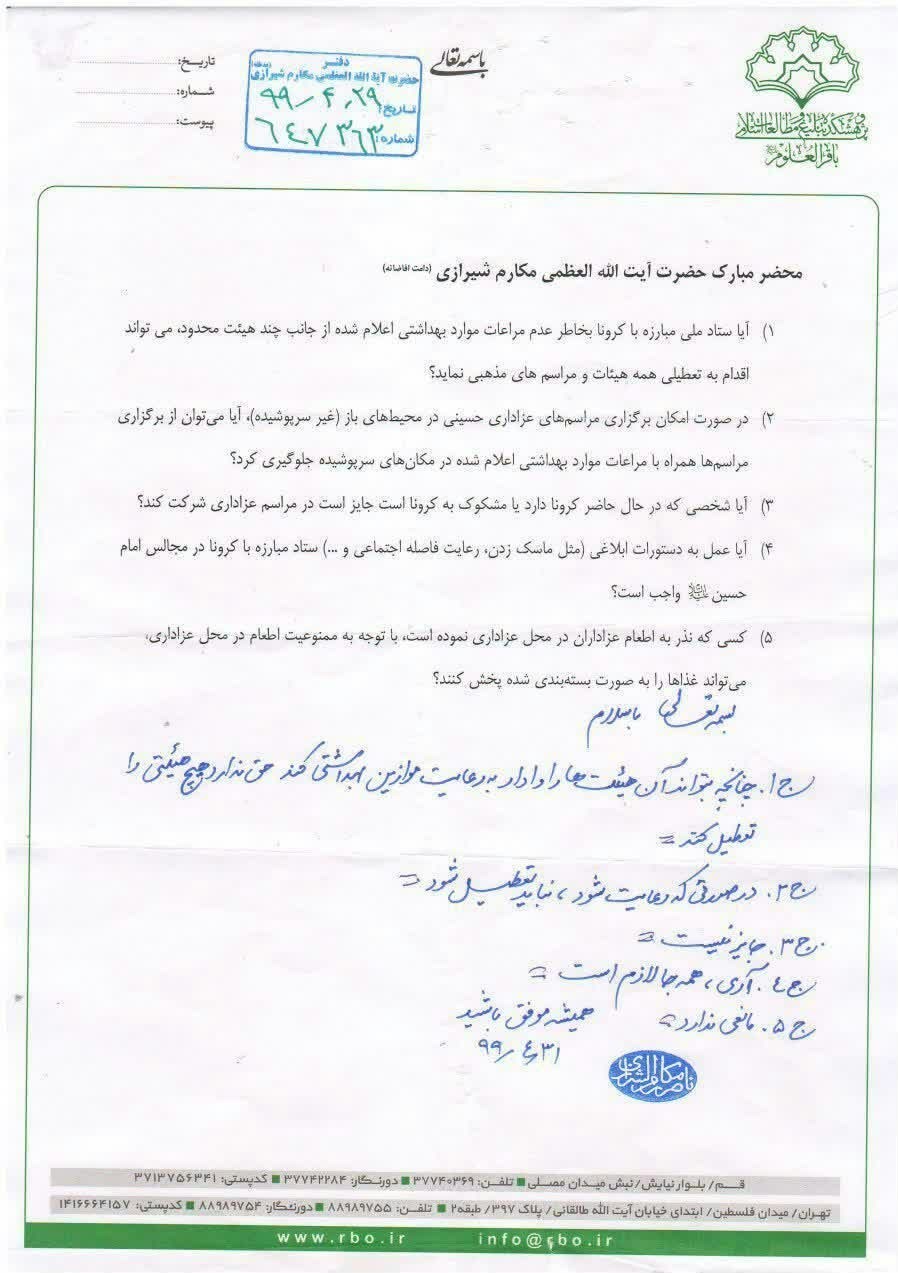 باسمه تعالی
پژوهشکده تبلیغ و مطالعات اسلامی
باقرالعلوم
تاریخ:
شماره:
پیوست:
دفتر
حضرت آیة الله العظمی مکارم شیرازی (مدظله)
تاریخ: ۹۹/۴/۲۹
شماره: ۶۴۷۳۶۳
محضر مبارک حضرت آیت الله العظمی مکارم شیرازی (دامت افاضاته)
۱) آیا ستاد ملی مبارزه با کرونا بخاطر عدم مراعات موارد بهداشتی اعلام شده از جانب چند هیئت محدود، می تواند
اقدام به تعطیلی همه هیئات و مراسم های مذهبی نماید؟
۲) در صورت امکان برگزاری مراسم‌های عزاداری حسینی در محیط‌های باز (غیر سرپوشیده)، آیا می‌توان از برگزاری
مراسم‌ها همراه با مراعات موارد بهداشتی اعلام شده در مکان‌های سرپوشیده جلوگیری کرد؟
۳) آیا شخصی که در حال حاضر کرونا دارد یا مشکوک به کرونا است جایز است در مراسم عزاداری شرکت کند؟
۴) آیا عمل به دستورات ابلاغی (مثل ماسک زدن، رعایت فاصله اجتماعی و ...) ستاد مبارزه با کرونا در مجالس امام
حسین علیه‌السلام واجب است؟
۵) کسی که نذر به اطعام عزاداران در محل عزاداری نموده است، با توجه به ممنوعیت اطعام در محل عزاداری،
می‌تواند غذاها را به صورت بسته‌بندی شده پخش کنند؟
بسمه تعالی با سلام
ج۱. چنانچه بتواند آن هیئت ها را وادار به رعایت موازین بهداشتی کند حق ندارد هیچ هیئتی را
تعطیل کند
ج۲. در صورتی که رعایت شود، نباید تعطیل شود
ج۳. جایز نیست
ج۴. آری، همه جا لازم است
ج۵. مانعی ندارد
همیشه موفق باشید
۹۹/۴/۳۱
ناصر مکارم الشیرازی
قم/ بلوار نیایش/ نبش میدان مصلی ■ تلفن: ۳۷۷۴۰۳۶۹ ■ دورنگار: ۳۷۷۴۲۲۸۴ ■ کدپستی: ۳۷۱۳۷۵۶۳۴۱
تهران/ میدان فلسطین/ ابتدای خیابان آیت الله طالقانی/ پلاک ۳۹۷/ طبقه۲ ■ تلفن: ۸۸۹۸۹۷۵۵ ■ دورنگار: ۸۸۹۸۹۷۵۴ ■ کدپستی: ۱۴۱۶۶۶۴۱۵۷
www.rbo.ir info@rbo.ir